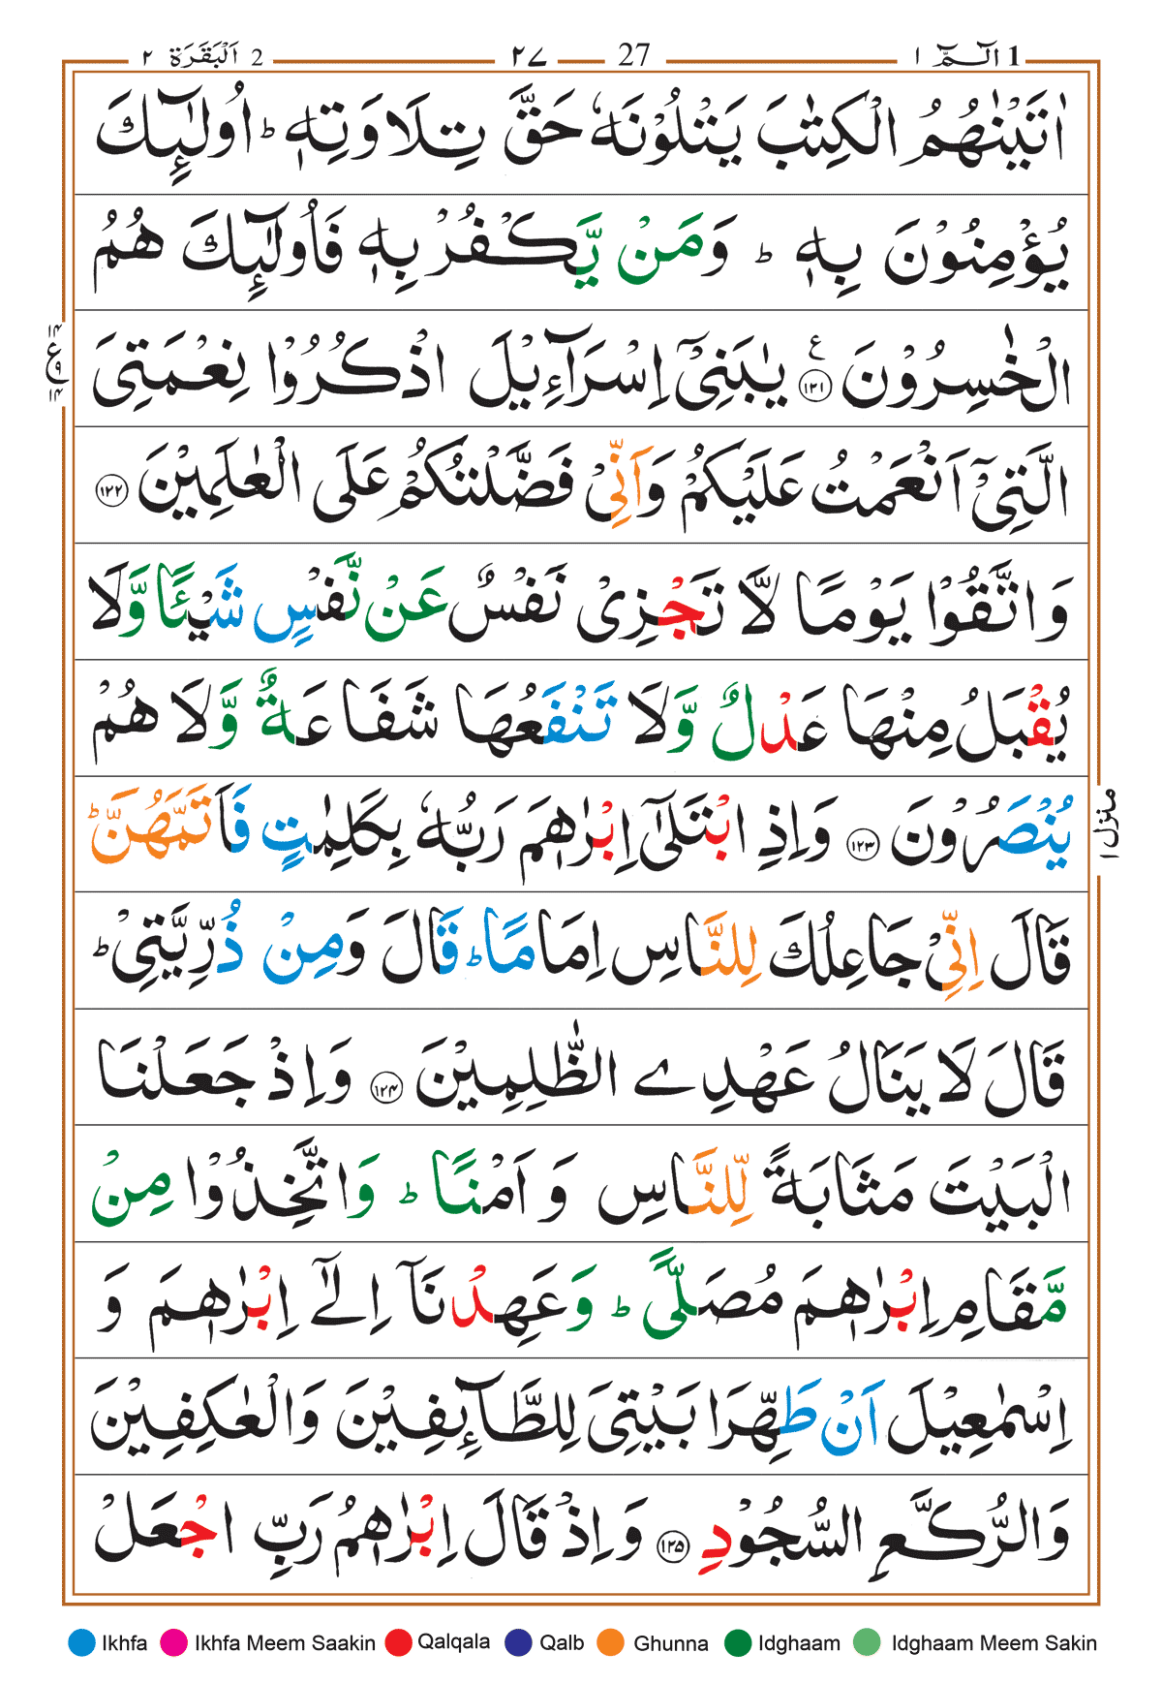 1 الٓـمّٓ ١ 27 ٢٧ 2 اَلْبَقَرَة ٢
اٰتَيْنٰهُمُ الْكِتٰبَ يَتْلُوْنَهٗ حَقَّ تِلَاوَتِهٖ ؕ اُولٰٓئِكَ
يُؤْمِنُوْنَ بِهٖ ؕ وَمَنْ يَّكْفُرْ بِهٖ فَاُولٰٓئِكَ هُمُ
الْخٰسِرُوْنَ ﴿۱۲۱﴾ ع يٰبَنِىْٓ اِسْرَآءِيْلَ اذْكُرُوْا نِعْمَتِىَ
الَّتِىْٓ اَنْعَمْتُ عَلَيْكُمْ وَاَنِّىْ فَضَّلْتُكُمْ عَلَى الْعٰلَمِيْنَ ﴿۱۲۲﴾
وَاتَّقُوْا يَوْمًا لَّا تَجْزِىْ نَفْسٌ عَنْ نَّفْسٍ شَيْئًا وَّلَا
يُقْبَلُ مِنْهَا عَدْلٌ وَّلَا تَنْفَعُهَا شَفَاعَةٌ وَّلَا هُمْ
يُنْصَرُوْنَ ﴿۱۲۳﴾ وَاِذِ ابْتَلٰٓى اِبْرٰهٖمَ رَبُّهٗ بِكَلِمٰتٍ فَاَتَمَّهُنَّ ؕ
قَالَ اِنِّىْ جَاعِلُكَ لِلنَّاسِ اِمَامًا ؕ قَالَ وَمِنْ ذُرِّيَّتِىْ ؕ
قَالَ لَا يَنَالُ عَهْدِے الظّٰلِمِيْنَ ﴿۱۲۴﴾ وَاِذْ جَعَلْنَا
الْبَيْتَ مَثَابَةً لِّلنَّاسِ وَ اَمْنًا ؕ وَاتَّخِذُوْا مِنْ
مَّقَامِ اِبْرٰهٖمَ مُصَلًّى ؕ وَعَهِدْنَآ اِلٰٓے اِبْرٰهٖمَ وَ
اِسْمٰعِيْلَ اَنْ طَهِّرَا بَيْتِىَ لِلطَّآئِفِيْنَ وَالْعٰكِفِيْنَ
وَالرُّكَّعِ السُّجُوْدِ ﴿۱۲۵﴾ وَاِذْ قَالَ اِبْرٰهٖمُ رَبِّ اجْعَلْ
۱۴
ع ۹
۱۴
منزل ۱
Ikhfa Ikhfa Meem Saakin Qalqala Qalb Ghunna Idghaam Idghaam Meem Sakin